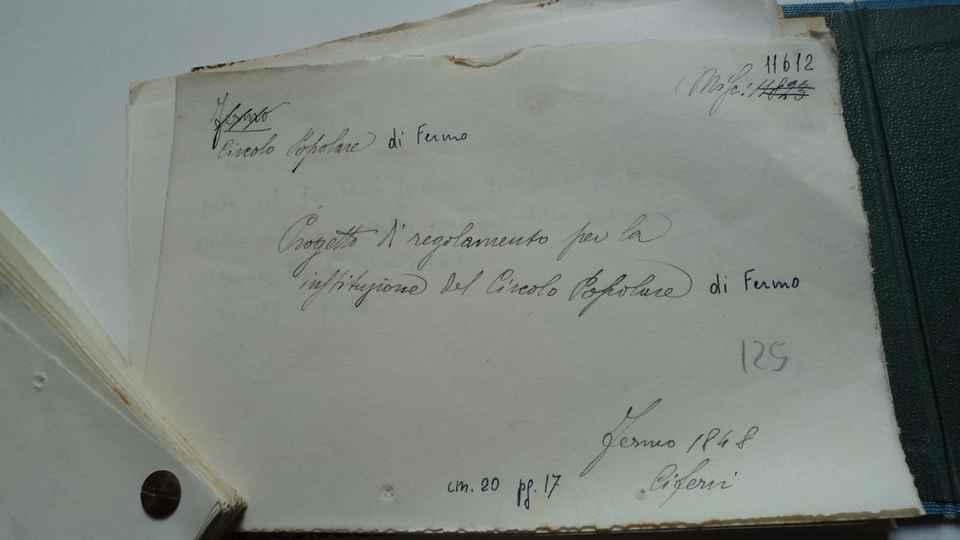 11612
Misc:
Fermo
Circolo Popolare di Fermo
Progetto di regolamento per la
instituzione del Circolo Popolare di Fermo
125
Fermo 1848
Ciferri
cm. 20 pg. 17